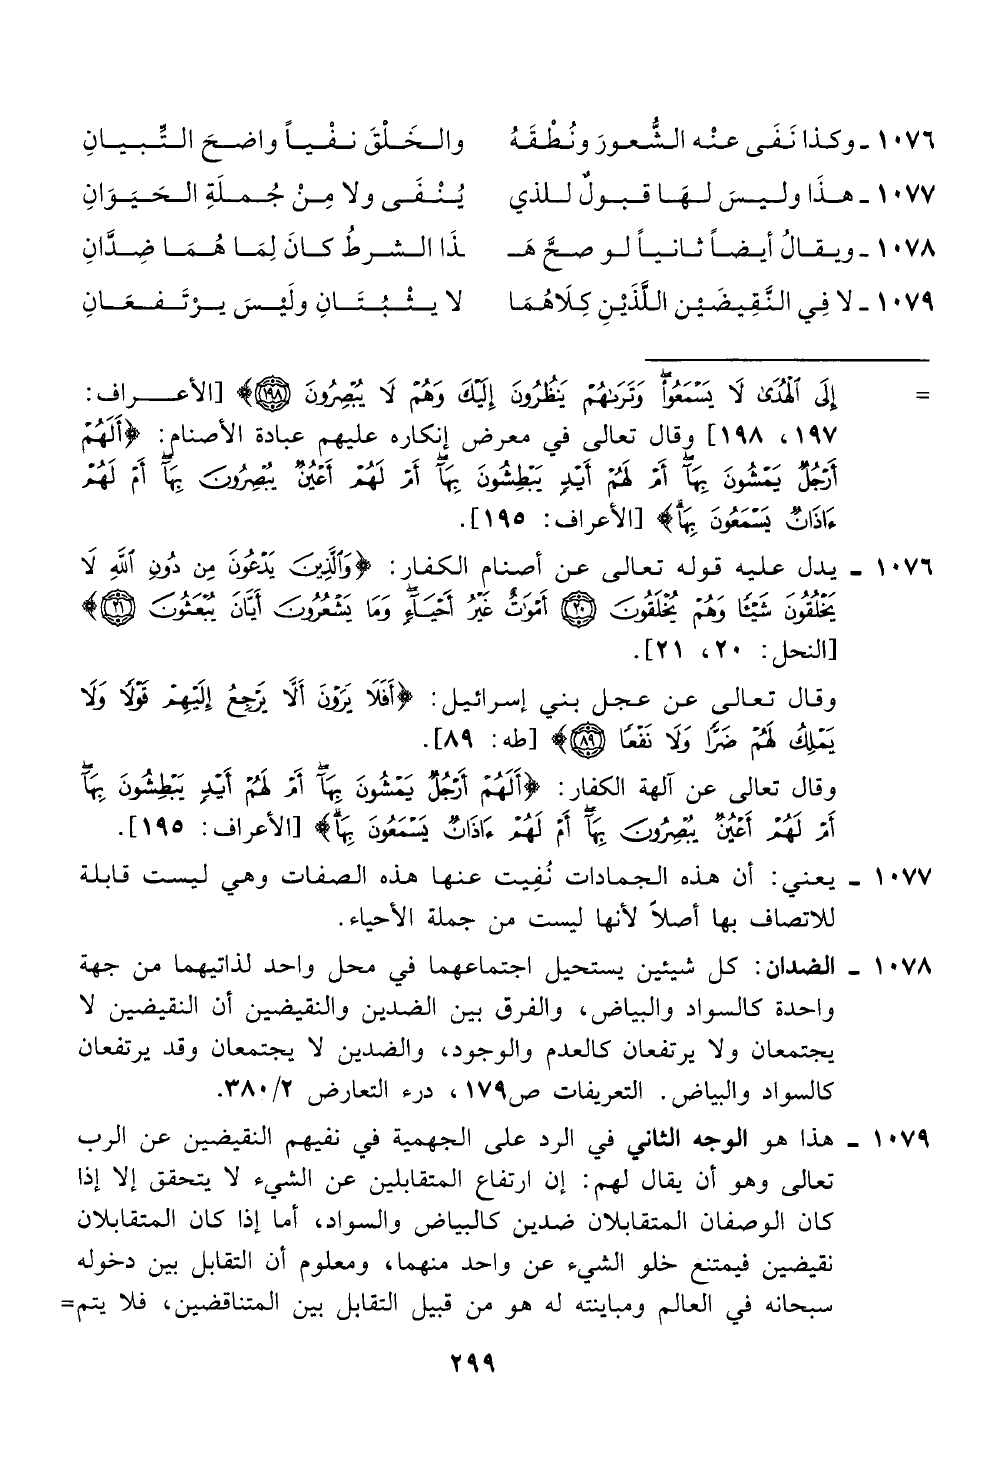 ١٠٧٦ ـ وكذا نَفَى عنْه الشُّعورَ ونُطْقَهُ والخَلْقَ نفْياً واضحَ التِّبيانِ
١٠٧٧ ـ هذَا وليسَ لهَا قبولٌ للذي يُنْفَى ولا مِنْ جُملَةِ الحَيَوَانِ
١٠٧٨ ـ ويقالُ أيضاً ثانياً لو صحَّ هَـ ـذَا الشرطُ كانَ لِمَا هُمَا ضِدَّانِ
١٠٧٩ ـ لا فِي النَّقِيضَيْنِ اللَّذَيْنِ كِلَاهُمَا لا يثْبُتَانِ ولَيْسَ يرْتَفعَانِ
= إِلَى ٱلْهُدَىٰ لَا يَسْمَعُوا۟ ۖ وَتَرَىٰهُمْ يَنظُرُونَ إِلَيْكَ وَهُمْ لَا يُبْصِرُونَ ﴿١٩٨﴾﴾ [الأعراف:
١٩٧، ١٩٨] وقال تعالى في معرض إنكاره عليهم عبادة الأصنام: ﴿أَلَهُمْ
أَرْجُلٌ يَمْشُونَ بِهَآ ۖ أَمْ لَهُمْ أَيْدٍ يَبْطِشُونَ بِهَآ ۖ أَمْ لَهُمْ أَعْيُنٌ يُبْصِرُونَ بِهَآ ۖ أَمْ لَهُمْ
ءَاذَانٌ يَسْمَعُونَ بِهَا ۗ﴾ [الأعراف: ١٩٥].
١٠٧٦ ـ يدل عليه قوله تعالى عن أصنام الكفار: ﴿وَٱلَّذِينَ يَدْعُونَ مِن دُونِ ٱللَّهِ لَا
يَخْلُقُونَ شَيْـًٔا وَهُمْ يُخْلَقُونَ ﴿٢٠﴾ أَمْوَٰتٌ غَيْرُ أَحْيَآءٍ ۖ وَمَا يَشْعُرُونَ أَيَّانَ يُبْعَثُونَ ﴿٢١﴾﴾
[النحل: ٢٠، ٢١].
وقال تعالى عن عجل بني إسرائيل: ﴿أَفَلَا يَرَوْنَ أَلَّا يَرْجِعُ إِلَيْهِمْ قَوْلًا وَلَا
يَمْلِكُ لَهُمْ ضَرًّا وَلَا نَفْعًا ﴿٨٩﴾﴾ [طه: ٨٩].
وقال تعالى عن آلهة الكفار: ﴿أَلَهُمْ أَرْجُلٌ يَمْشُونَ بِهَآ ۖ أَمْ لَهُمْ أَيْدٍ يَبْطِشُونَ بِهَآ ۖ
أَمْ لَهُمْ أَعْيُنٌ يُبْصِرُونَ بِهَآ ۖ أَمْ لَهُمْ ءَاذَانٌ يَسْمَعُونَ بِهَا ۗ﴾ [الأعراف: ١٩٥].
١٠٧٧ ـ يعني: أن هذه الجمادات نُفِيت عنها هذه الصفات وهي ليست قابلة
للاتصاف بها أصلاً لأنها ليست من جملة الأحياء.
١٠٧٨ ـ الضدان: كل شيئين يستحيل اجتماعهما في محل واحد لذاتيهما من جهة
واحدة كالسواد والبياض، والفرق بين الضدين والنقيضين أن النقيضين لا
يجتمعان ولا يرتفعان كالعدم والوجود، والضدين لا يجتمعان وقد يرتفعان
كالسواد والبياض. التعريفات ص١٧٩، درء التعارض ٣٨٠/٢.
١٠٧٩ ـ هذا هو الوجه الثاني في الرد على الجهمية في نفيهم النقيضين عن الرب
تعالى وهو أن يقال لهم: إن ارتفاع المتقابلين عن الشيء لا يتحقق إلا إذا
كان الوصفان المتقابلان ضدين كالبياض والسواد، أما إذا كان المتقابلان
نقيضين فيمتنع خلو الشيء عن واحد منهما، ومعلوم أن التقابل بين دخوله
سبحانه في العالم ومباينته له هو من قبيل التقابل بين المتناقضين، فلا يتم=
٢٩٩